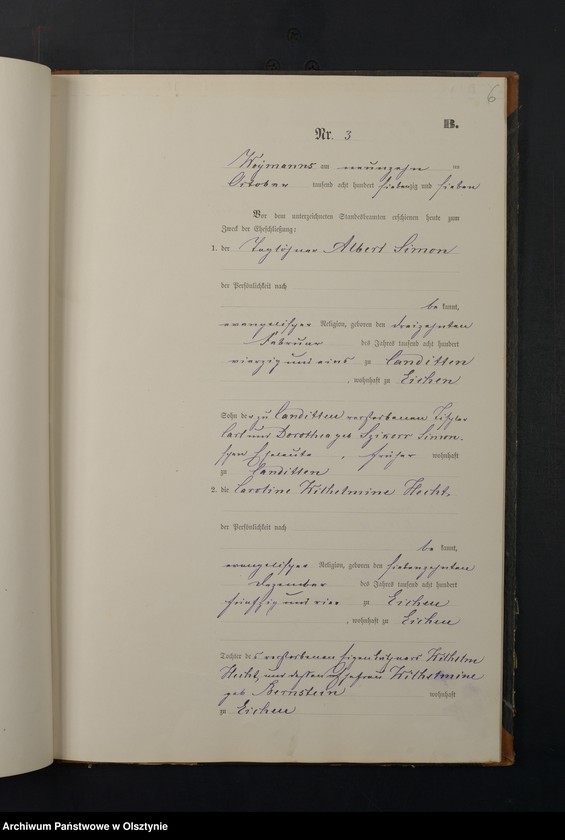 6
B.
Nr. 3
Woymanns am neunzehn ten
October tausend acht hundert siebenzig und sieben
Vor dem unterzeichneten Standesbeamten erschienen heute zum
Zweck der Eheschließung:
1. der Taglöhner Albert Simon
der Persönlichkeit nach
be kannt,
evangelischer Religion, geboren den dreizehnten
Februar des Jahres tausend acht hundert
vierzig und eins zu Canditten
, wohnhaft zu Eichen
Sohn der zu Canditten verstorbenen Tischler
Carl und Dorothea geb Simon-
schen Eheleute , früher wohnhaft
zu Canditten
2. die Caroline Wilhelmine Hecht,
der Persönlichkeit nach
be kannt,
evangelischer Religion, geboren den siebenzehnten
Dezember des Jahres tausend acht hundert
fünfzig und vier zu Eichen
, wohnhaft zu Eichen
Tochter des verstorbenen Eigenkäthners Wilhelm
Hecht, und dessen Ehefrau Wilhelmine
geb Bernstein wohnhaft
zu Eichen
Archiwum Państwowe w Olsztynie